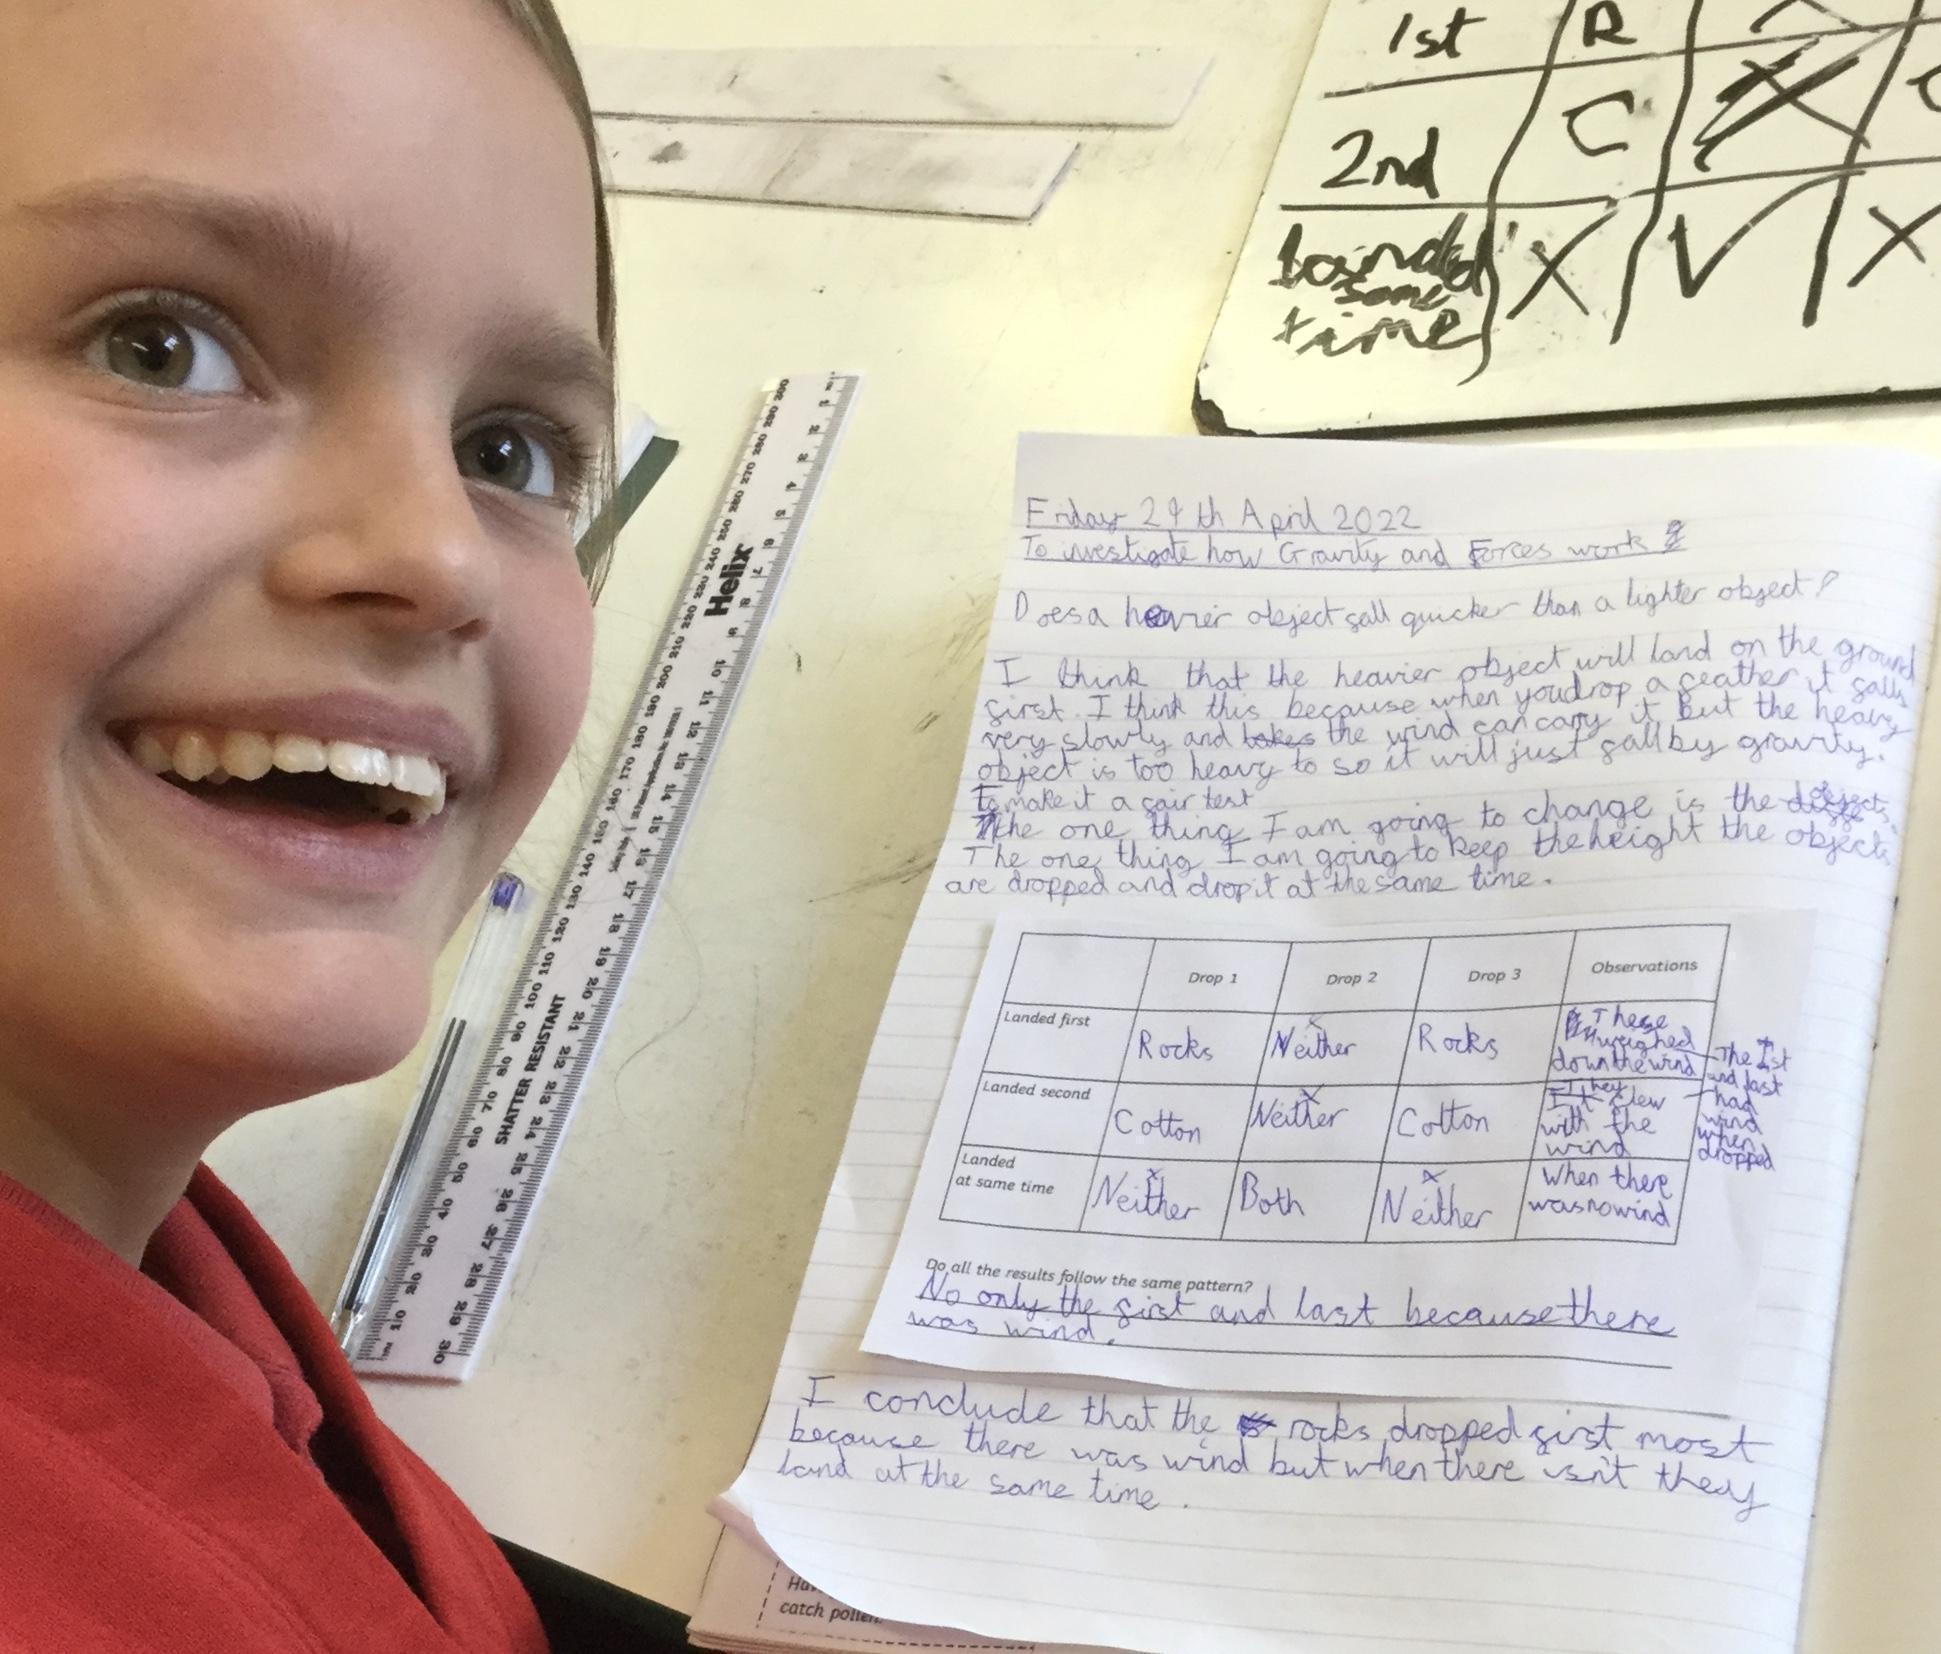 1st R
2nd C X
landed
same
time X ✓ X
Helix
SHATTER RESISTANT
Friday 29th April 2022
To investigate how Gravity and Forces work
Does a heavier object fall quicker than a lighter object?
I think that the heavier object will land on the ground
first. I think this because when you drop a feather it falls
very slowly and takes the wind can carry it but the heavy
object is too heavy to so it will just fall by gravity.
To make it a fair test
The one thing I am going to change is the objects.
The one thing I am going to keep the height the objects
are dropped and drop it at the same time.
Drop 1 Drop 2 Drop 3 Observations
Landed first Rocks Neither Rocks These
weighed
down the wind
Landed second Cotton Neither Cotton They
flew
with the
wind
The 1st
and last
had
wind
when
dropped
Landed
at same time Neither Both Neither When there
was no wind
Do all the results follow the same pattern?
No only the first and last because there
was wind.
I conclude that the rocks dropped first most
because there was wind but when there isn't they
land at the same time.
catch pollen.